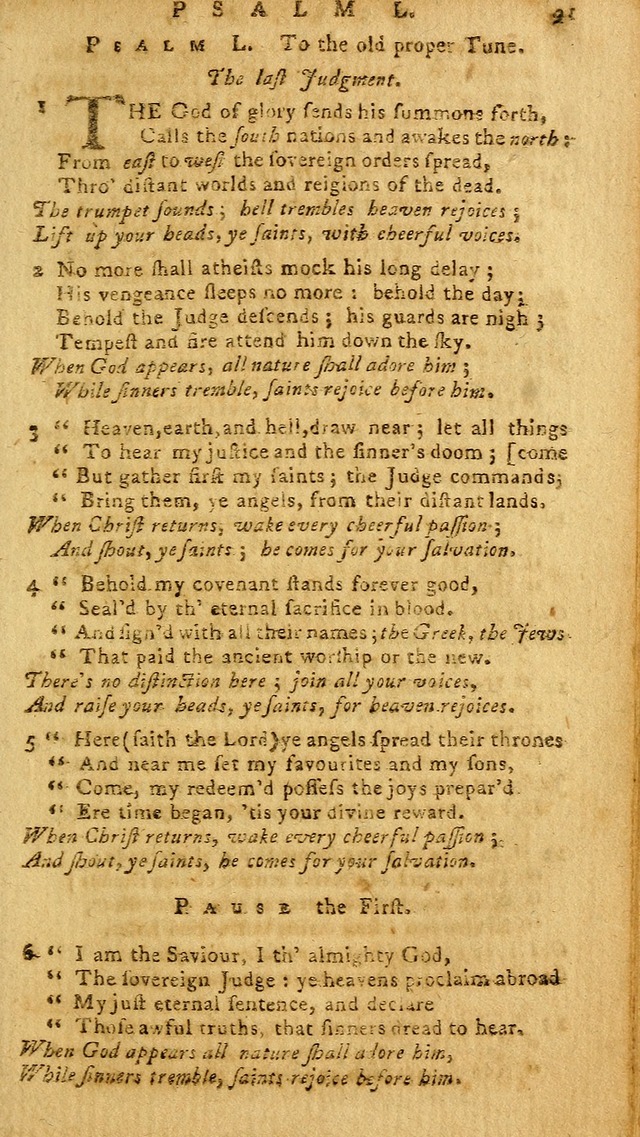 PSALM L. 91
PSALM L. To the old proper Tune.
The laſt Judgment.
1 THE God of glory ſends his ſummons forth,
Calls the ſouth nations and awakes the north;
From eaſt to weſt the ſovereign orders ſpread,
Thro' diſtant worlds and reigions of the dead.
The trumpet ſounds; hell trembles heaven rejoices;
Lift up your heads, ye ſaints, with cheerful voices.
2 No more ſhall atheiſts mock his long delay;
His vengeance ſleeps no more: behold the day;
Behold the Judge deſcends; his guards are nigh;
Tempeſt and fire attend him down the ſky.
When God appears, all nature ſhall adore him;
While ſinners tremble, ſaints rejoice before him.
3 “ Heaven, earth, and hell, draw near; let all things
“ To hear my juſtice and the ſinner's doom; [come
“ But gather firſt my ſaints; the Judge commands;
“ Bring them, ye angels, from their diſtant lands.
When Chriſt returns, wake every cheerful paſſion;
And ſhout, ye ſaints; he comes for your ſalvation.
4 “ Behold my covenant ſtands forever good,
“ Seal'd by th' eternal ſacrifice in blood.
“ And ſign'd with all their names; the Greek, the Jews
“ That paid the ancient worſhip or the new.
There's no diſtinction here; join all your voices,
And raiſe your heads, ye ſaints, for heaven rejoices.
5 “ Here (ſaith the Lord) ye angels ſpread their thrones
“ And near me ſet my favourites and my ſons,
“ Come, my redeem'd poſſeſs the joys prepar'd
“ Ere time began, 'tis your divine reward.
When Chriſt returns, wake every cheerful paſſion;
And ſhout, ye ſaints, he comes for your ſalvation.
PAUSE the Firſt.
6 “ I am the Saviour, I th' almighty God,
“ The ſovereign Judge: ye heavens proclaim abroad
“ My juſt eternal ſentence, and declare
“ Thoſe awful truths, that ſinners dread to hear.
When God appears all nature ſhall adore him,
While ſinners tremble, ſaints rejoice before him.